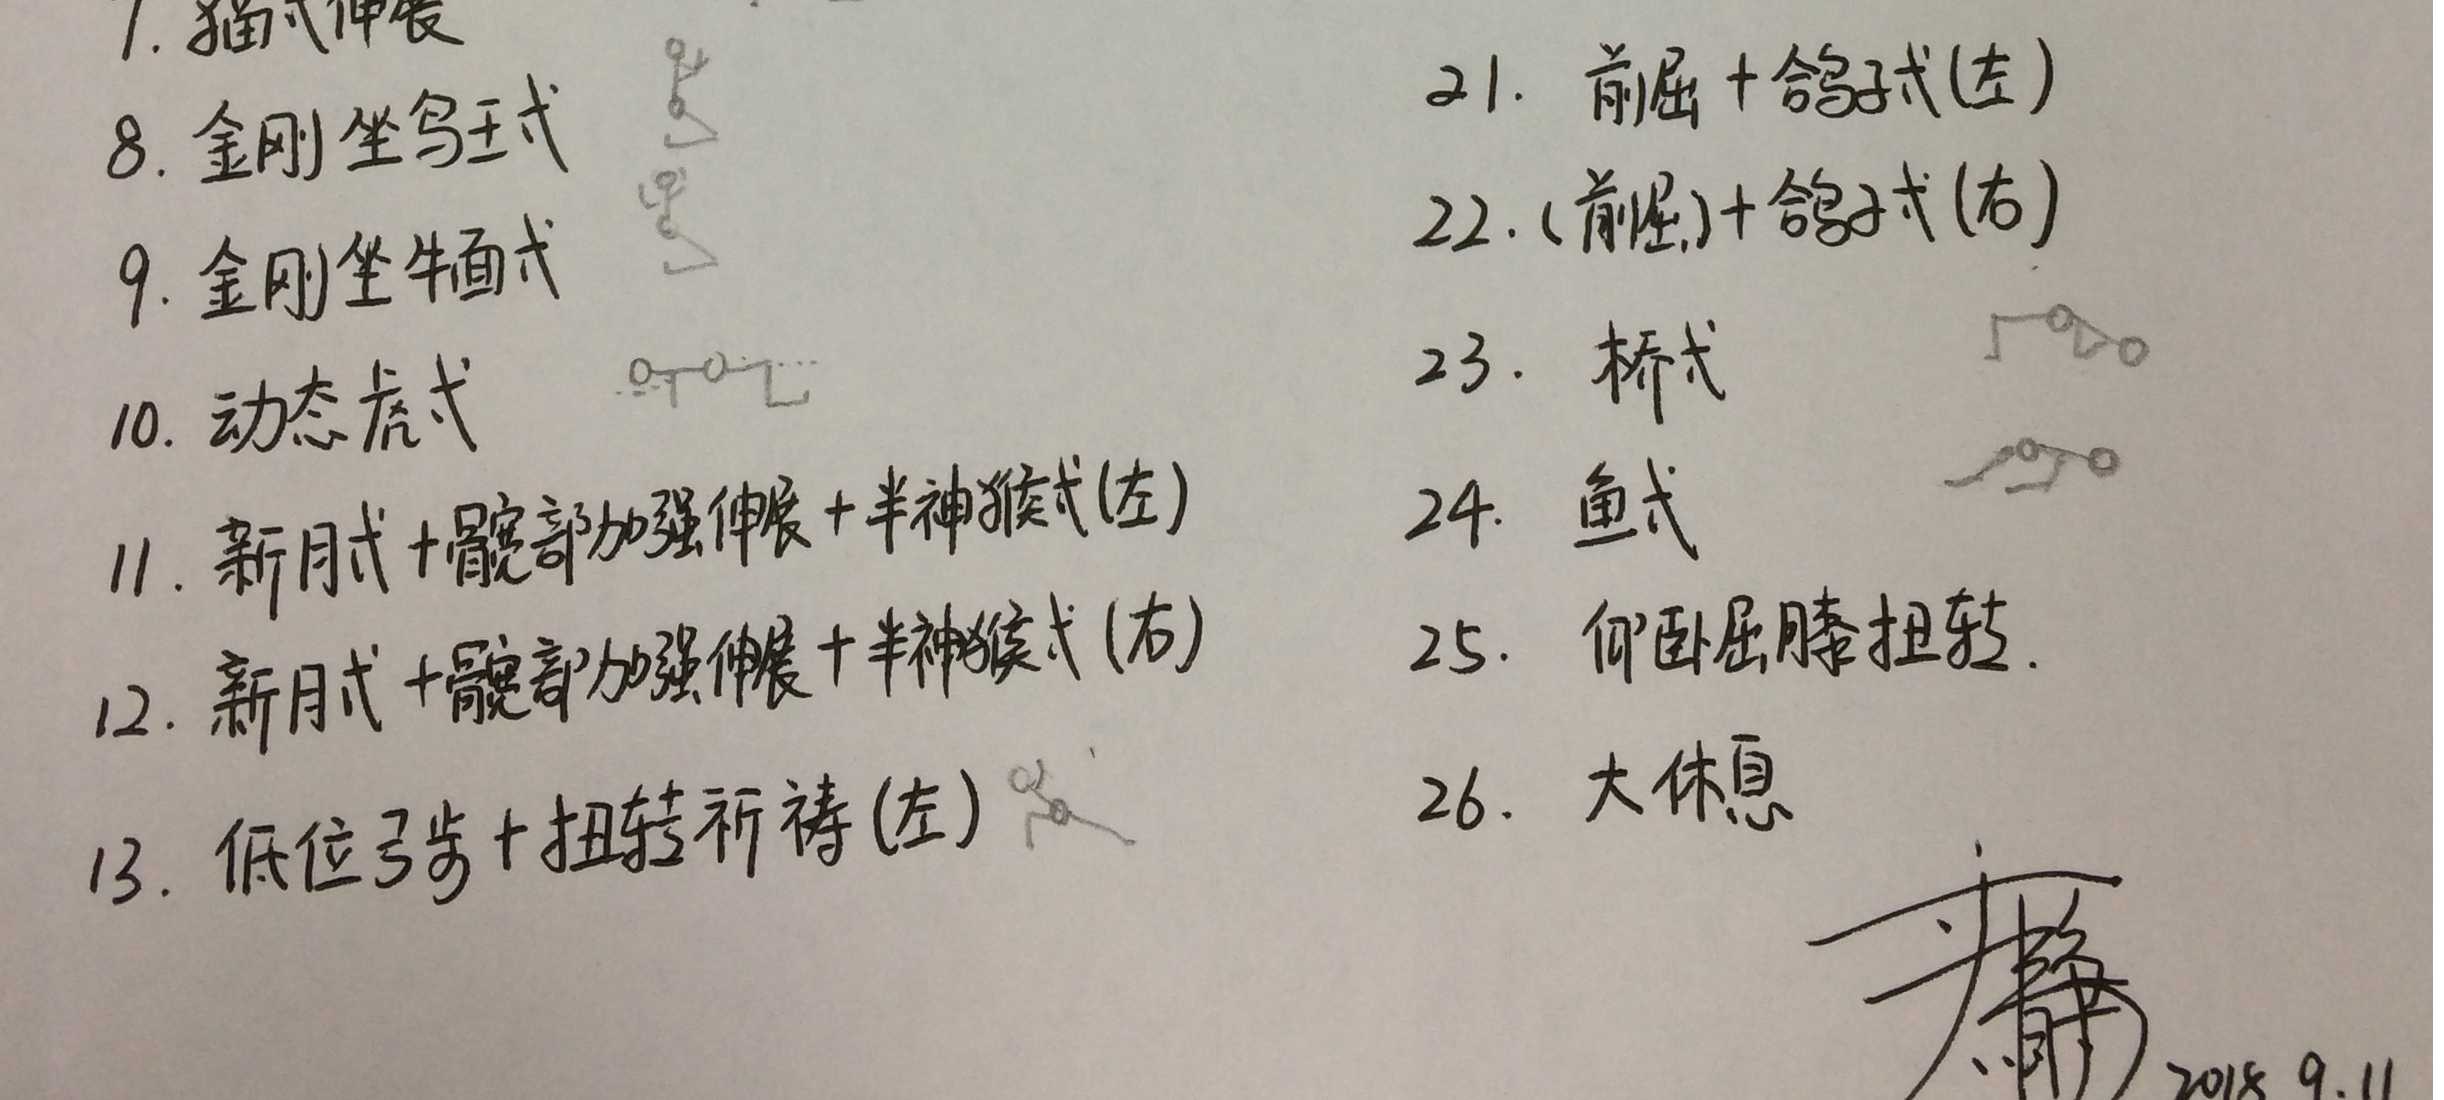 7. 猫式伸展
8. 金刚坐鸟王式
9. 金刚坐牛面式
10. 动态虎式
11. 新月式+髋部加强伸展+半神猴式(左)
12. 新月式+髋部加强伸展+半神猴式(右)
13. 低位弓步+扭转祈祷(左)
21. 前屈+鸽子式(左)
22. (前屈)+鸽子式(右)
23. 桥式
24. 鱼式
25. 仰卧屈膝扭转.
26. 大休息
2018.9.11